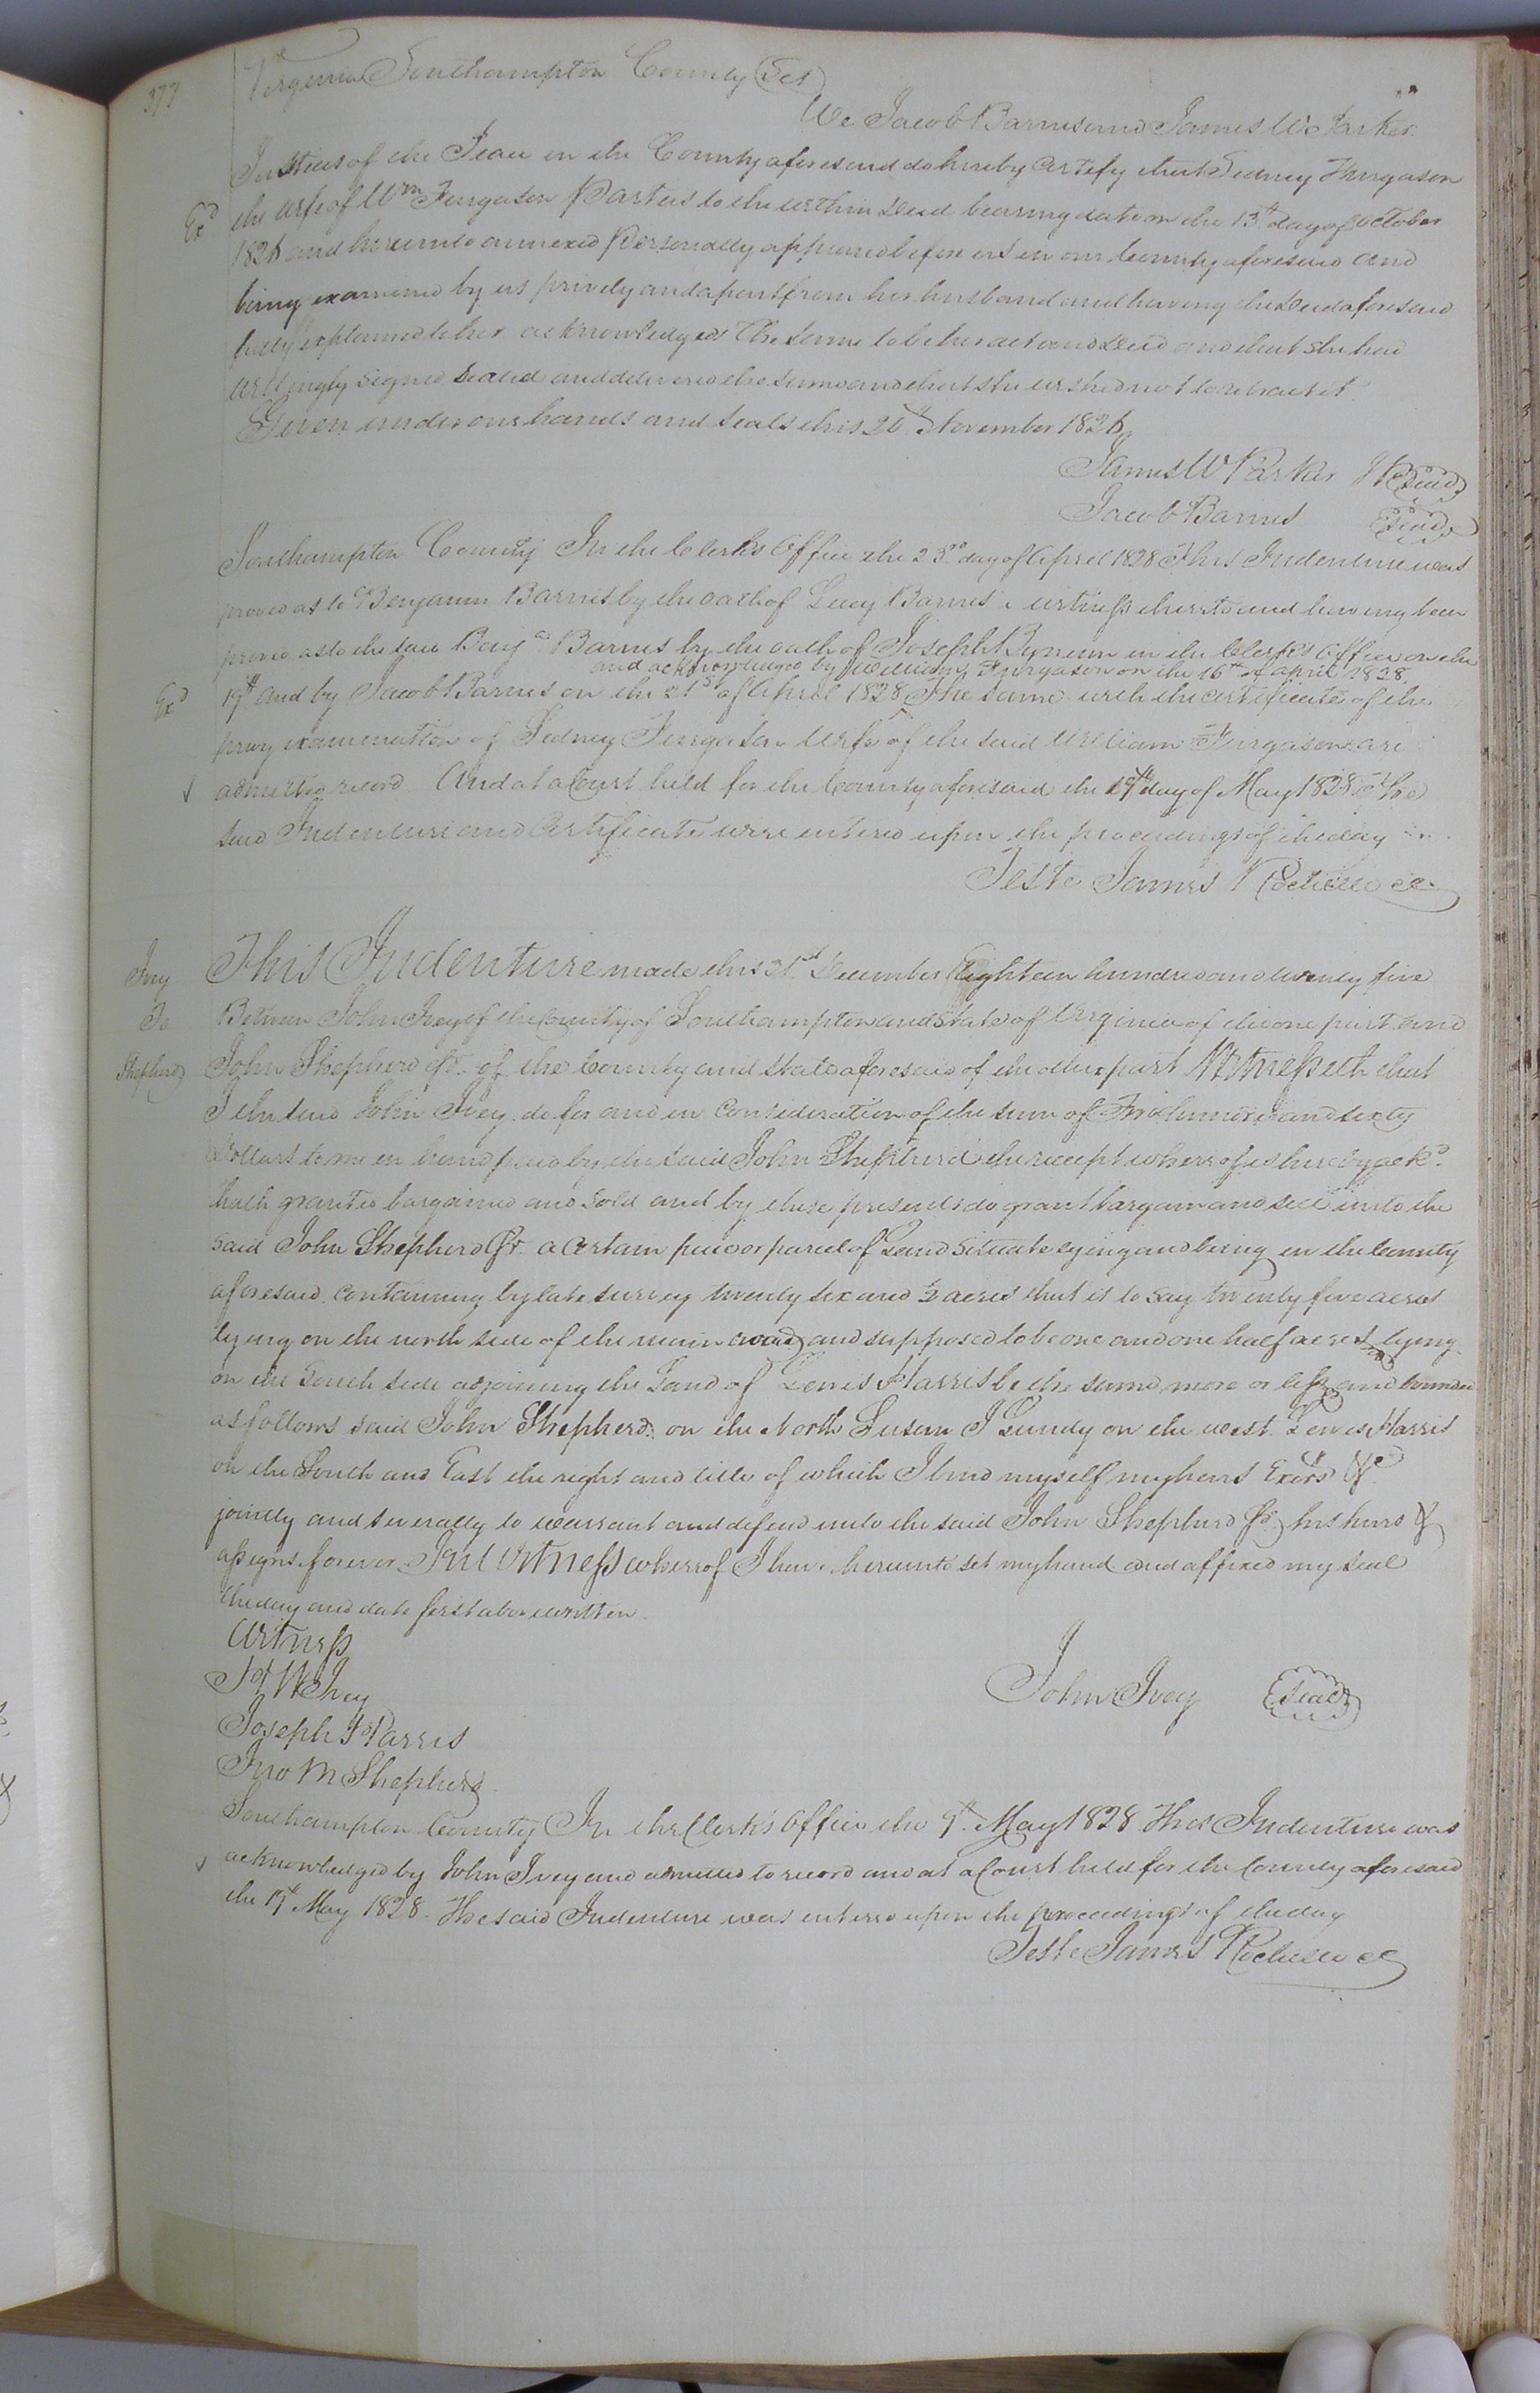 377
Virginia Southampton County Sct
We Jacob Barnes and James W Parker
Justices of the Peace in the County aforesaid do hereby certify that Sidney Thurgason
Exd the wife of Wm Furgason Parties to the within Deed bearing date on the 13th day of October
1826 and hereunto annexed Personally appeared before us in our County aforesaid and
being examined by us privily and apart from her husband and having the Deed aforesaid
fully explained to her acknowledged the same to be her act and Deed and that she had
willingly signed sealed and delivered the same and that she wished not to retract it
Given under our hands and seals this 20th November 1826
James W Parker JP Seal
Jacob Barnes Seal
Southampton County In the Clerks Office the 23rd day of April 1828 This Indenture was
proved as to Benjamin Barnes by the oath of Lucy Barnes a witness thereto and having been
proved as to the said Benja Barnes by the oath of Joseph Bynum in the Clerks Office on the
and acknowledged by William Furgason on the 16th of April 1828.
Exd 19th and by Jacob Barnes on the 21st of April 1828 The same with the certificate of the
privy examination of Sidney Furgason wife of the said William Furgason are
admitted record And at a Court held for the County aforesaid the 19th day of May 1828 The
said Indenture and Certificate were entered upon the proceedings of the day
Teste James Rochelle cc
Ivy This Indenture made this 21st December Eighteen hundred and twenty five
To Between John Ivey of the County of Southampton and State of Virginia of the one part and
Shepherd John Shepherd Jr. of the County and State aforesaid of the other part Witnesseth that
I the said John Ivey do for and in consideration of the sum of Two hundred and sixty
Dollars to me in hand paid by the said John Shepherd the receipt whereof is hereby ackd
hath granted bargained and sold and by these presents do grant bargain and sell unto the
said John Shepherd Jr a certain piece or parcel of Land situate lying and being in the County
aforesaid containing by late survey twenty six and ½ acres that is to say twenty five acres
lying on the north side of the main road and supposed to be one and one half acres lying
on the South side adjoining the Land of Lewis Harris be the same more or less and bounded
as follows said John Shepherd on the North Susan J Gundy on the west Lewis Harris
on the South and East the right and title of which I bind myself my heirs Exors &c
jointly and severally to warrant and defend unto the said John Shepherd Jr his heirs &
assigns forever In Witness whereof I have hereunto set my hand and affixed my seal
the day and date first above written
Witness
W Ivey John Ivey Seal
Joseph Harris
Jno M Shepherd
Southampton County In the Clerk's Office the 9th May 1828 This Indenture was
acknowledged by John Ivey and admitted to record and at a Court held for the County aforesaid
the 19th May 1828. The said Indenture was entered upon the proceedings of the day
Teste James Rochelle cc